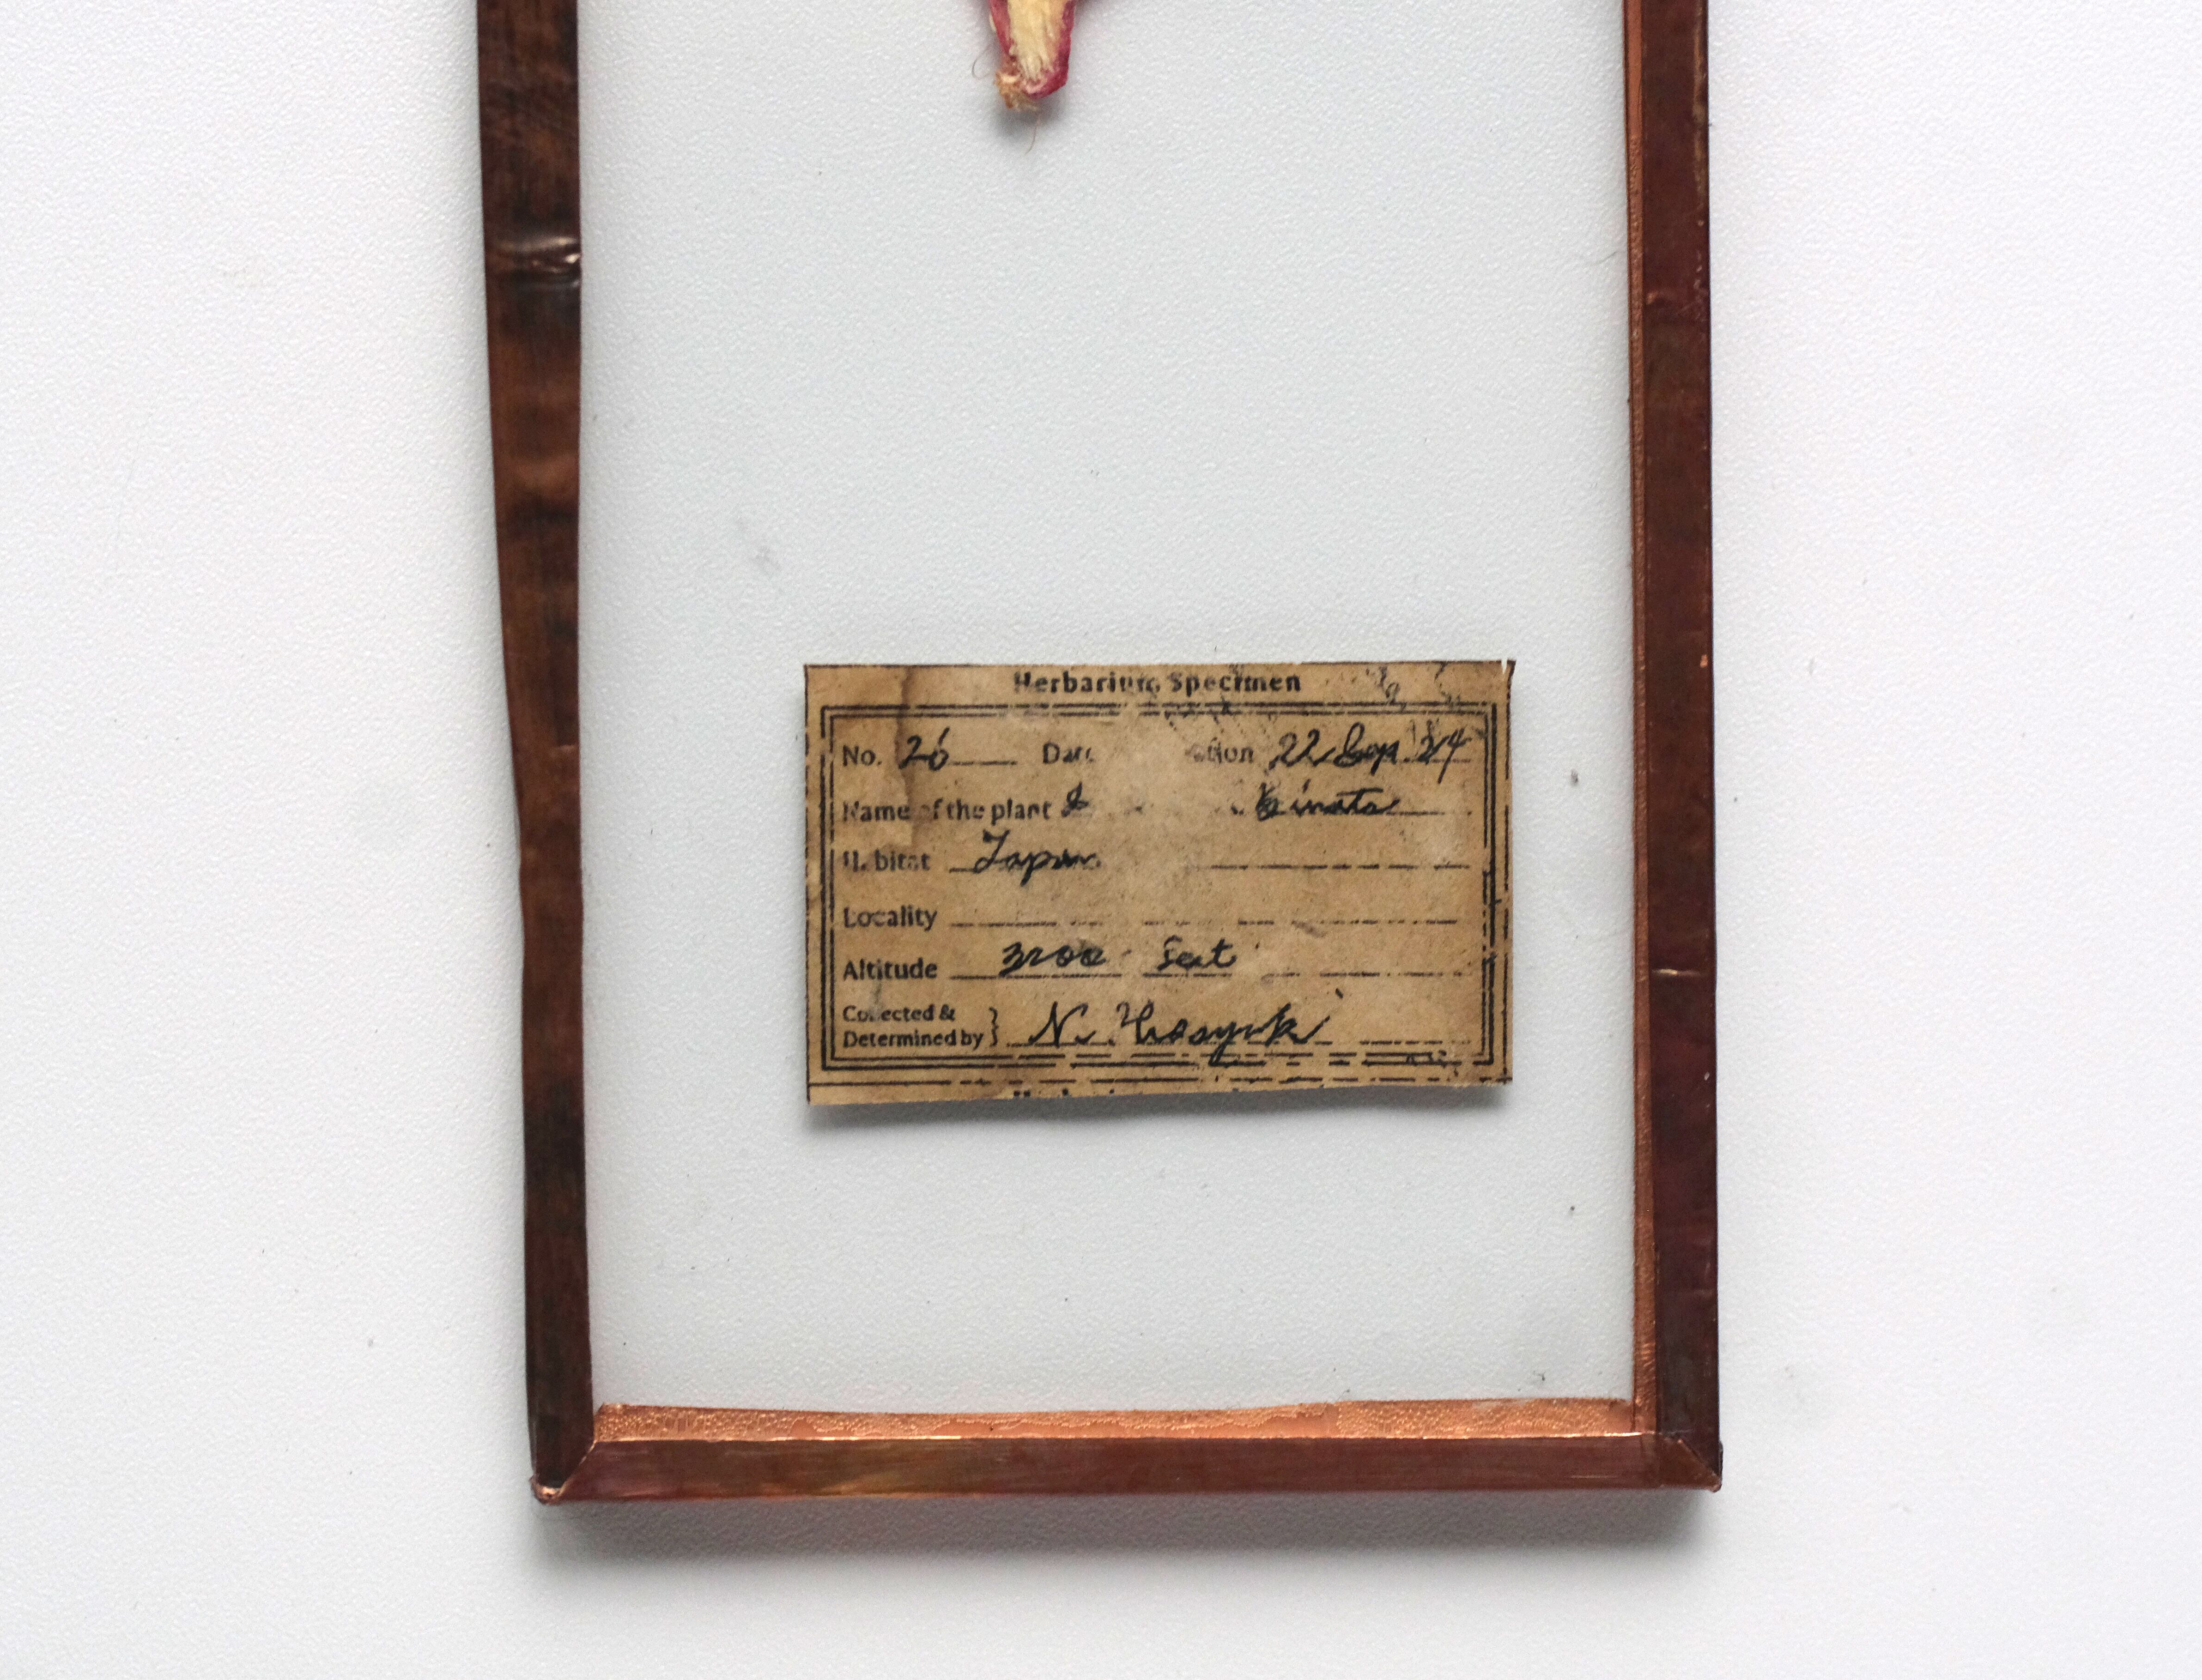 Herbarium Specimen
No. 26 Date 22 Sep. 24
Name of the plant
Habitat Japan
Locality
Altitude 3200 feet
Collected &
Determined by } N.